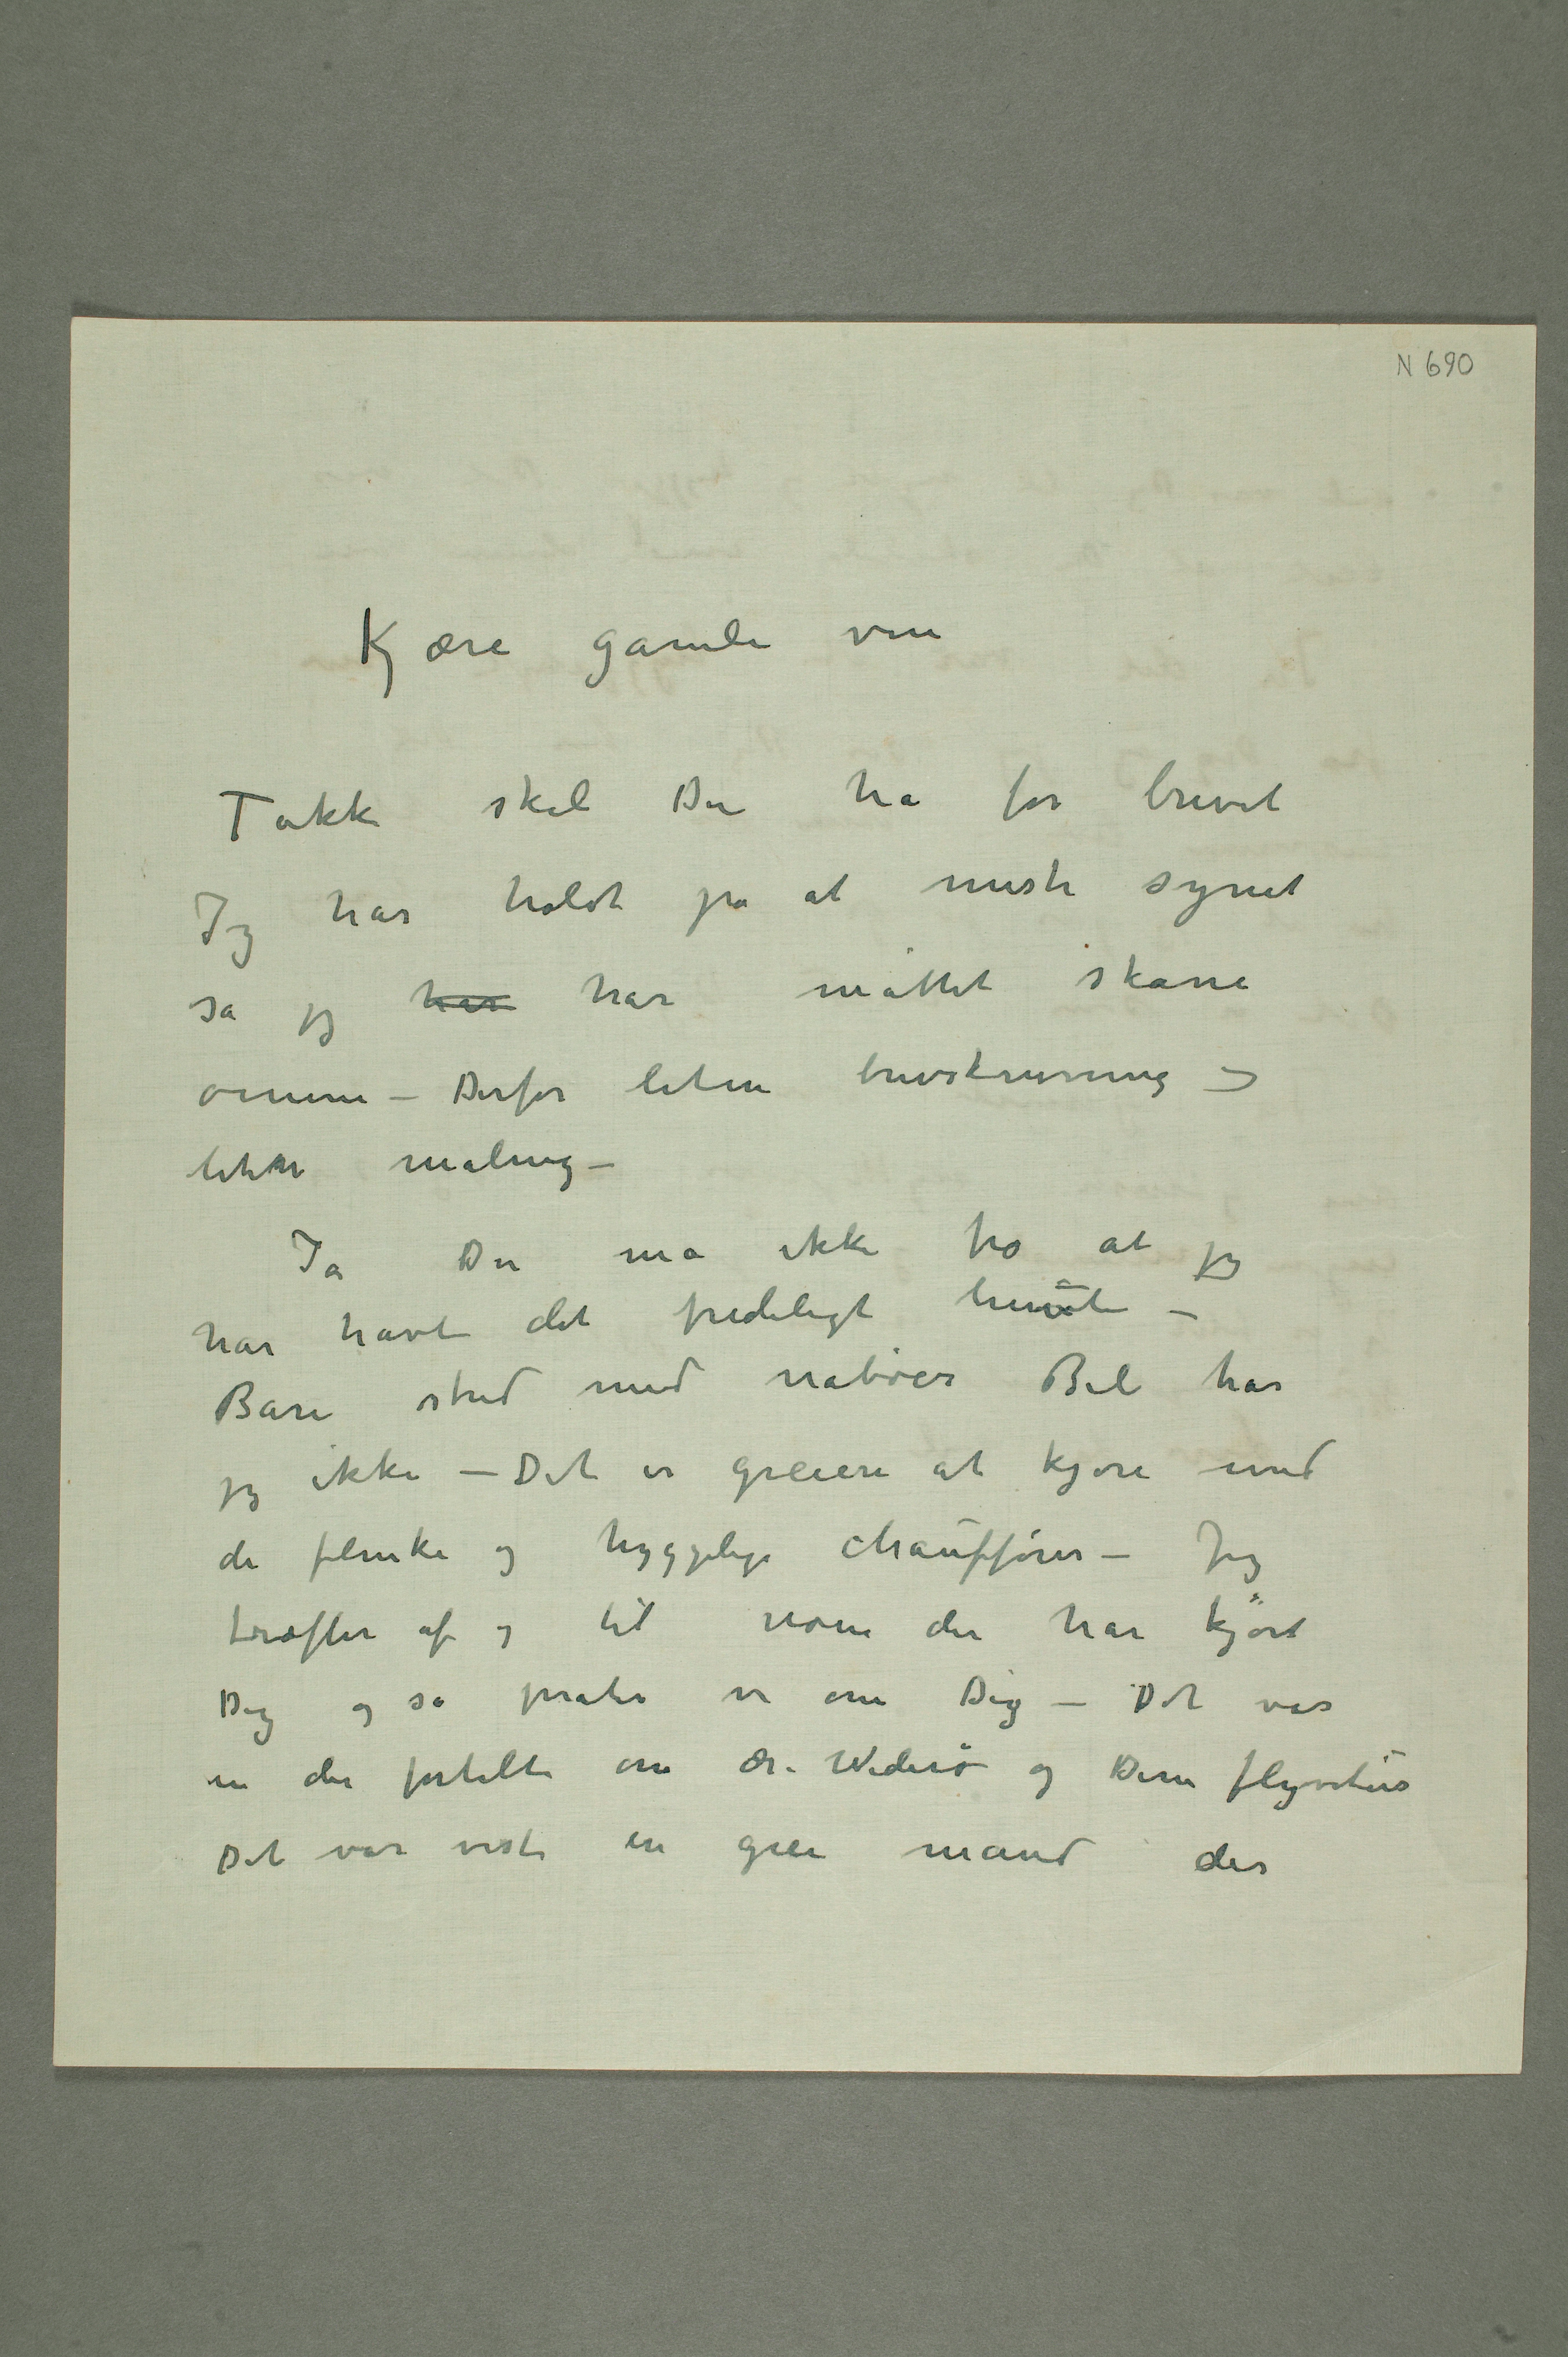 N 690
Kjære gamle ven
Takk skal Du ha for brevet
Jeg har holdt på at miste synet
så jeg har har måttet skåne
øinene – Derfor liten brevskrivning –
liten maling –
Ja Du må ikke tro at jeg
har havt det fredeligt herute –
Bare strid med naboer Bil har
jeg ikke – Det er greiere at kjøre med
de flinke og hyggelige chauffører – Jeg
træffer af og til noen der har kjørt
Dig og så prater vi om Dig – Det var
en der fortalte om Widerø og Deres flyvetur
Det var visst en grei mand der